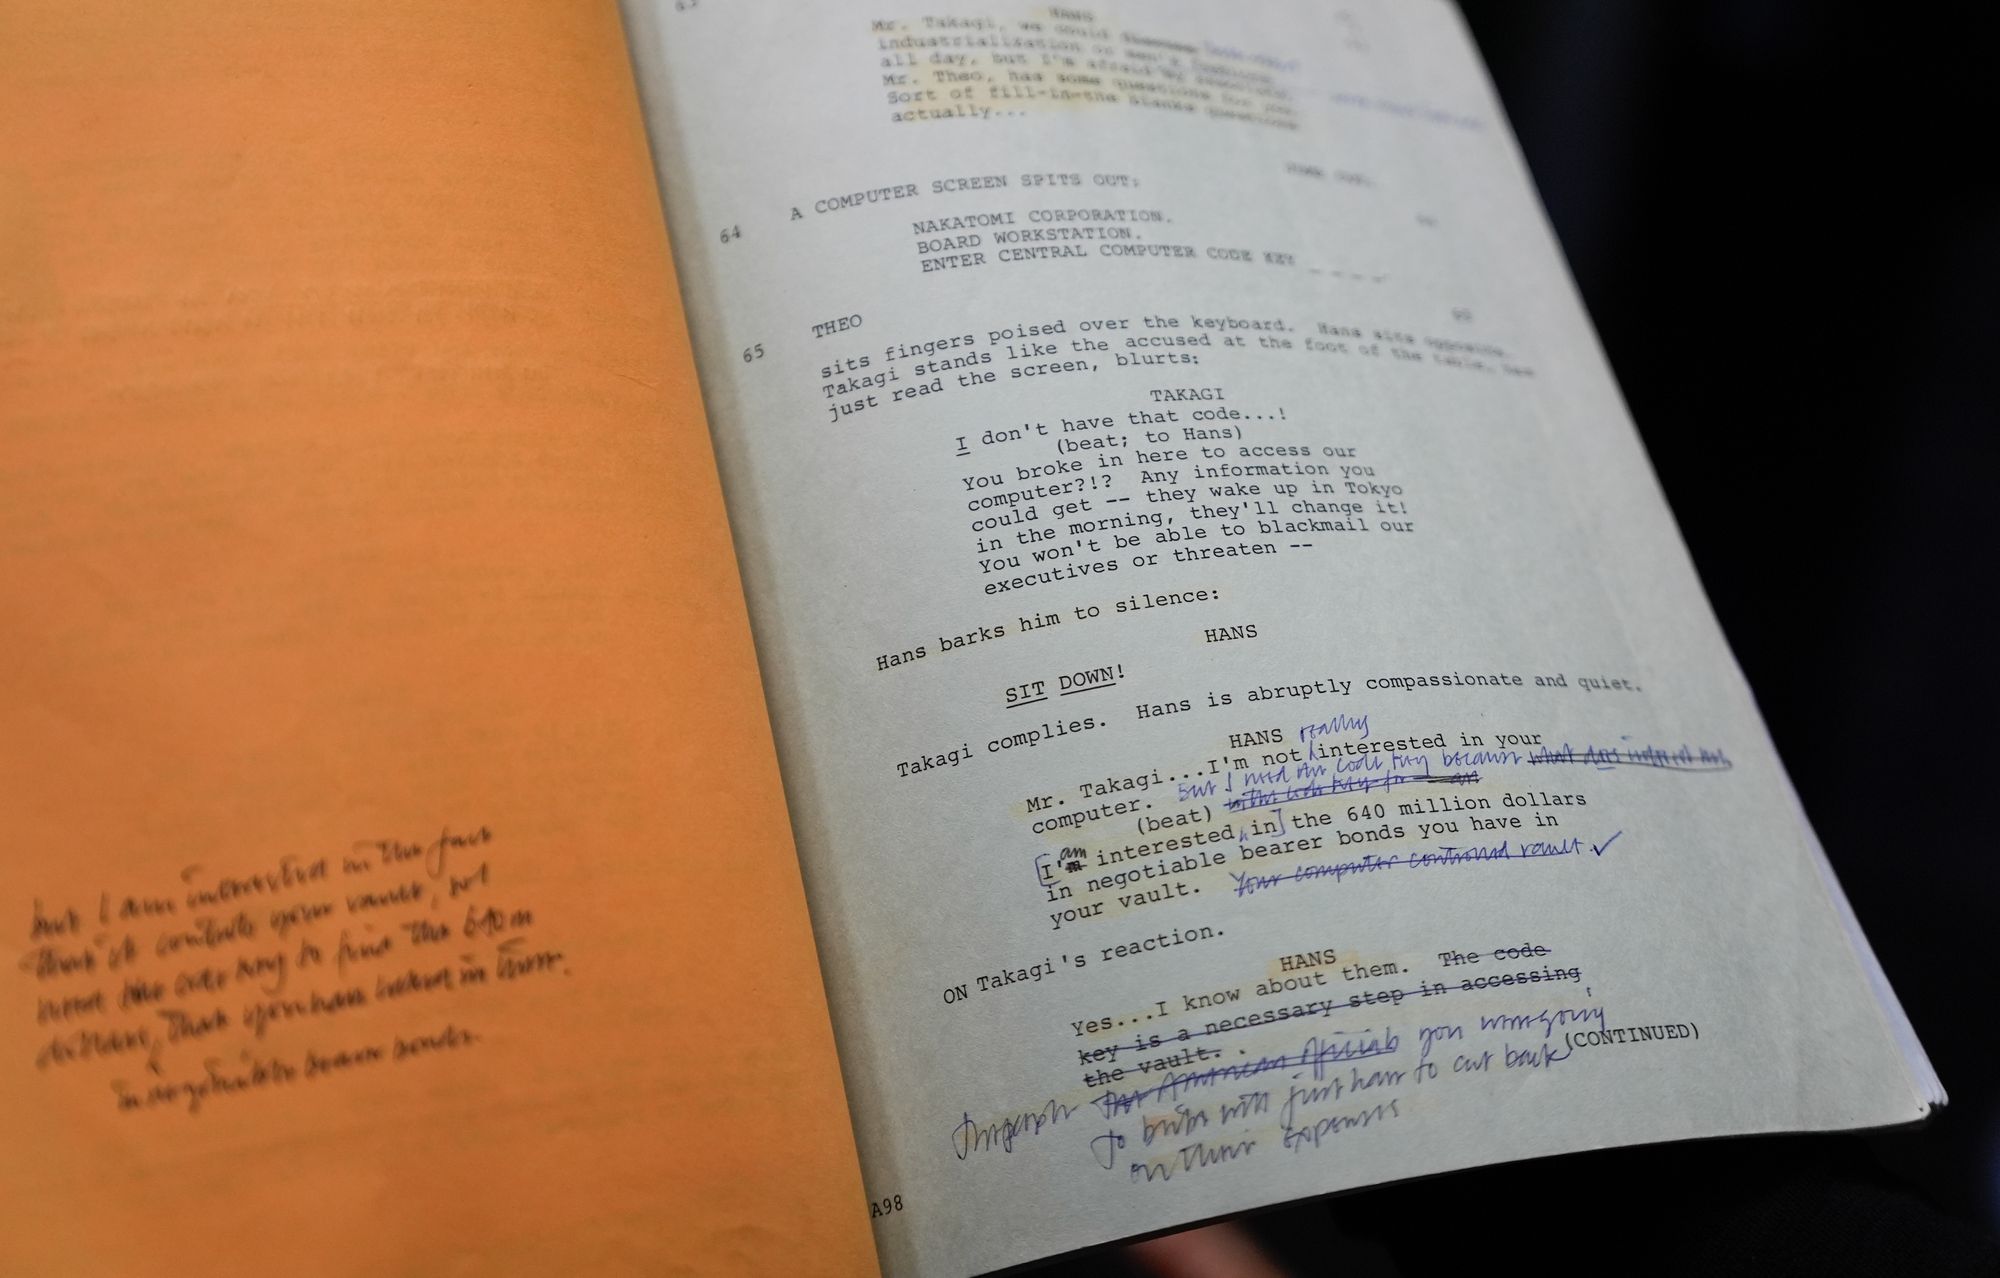 but I am interested in the fact
that it controls your vault,
need the code key to find the 640 m
dollars, that you have locked in there.
in negotiable bearer bonds.
HANS
Mr. Takagi, we could discuss
industrialization or men's fashions
all day, but I'm afraid my associate,
Mr. Theo, has some questions for you.
Sort of fill-in-the blanks questions
actually...
64 A COMPUTER SCREEN SPITS OUT:
NAKATOMI CORPORATION.
BOARD WORKSTATION.
ENTER CENTRAL COMPUTER CODE KEY _ _ _ _
65 THEO
sits fingers poised over the keyboard. Hans sits opposite.
Takagi stands like the accused at the foot of the table, has
just read the screen, blurts:
TAKAGI
I don't have that code...!
(beat; to Hans)
You broke in here to access our
computer?!? Any information you
could get -- they wake up in Tokyo
in the morning, they'll change it!
You won't be able to blackmail our
executives or threaten --
Hans barks him to silence:
HANS
SIT DOWN!
Takagi complies. Hans is abruptly compassionate and quiet.
HANS
really
Mr. Takagi...I'm not interested in your
computer. But I need the code key because what does interest me
(beat) in the code key for
am
[I'm interested, in] the 640 million dollars
in negotiable bearer bonds you have in
your vault. Your computer controlled vault. ✓
ON Takagi's reaction.
HANS
Yes...I know about them. The code
key is a necessary step in accessing
the vault.
The American officials you were going
(CONTINUED)
to bribe will just have to cut back
on their expenses
A98